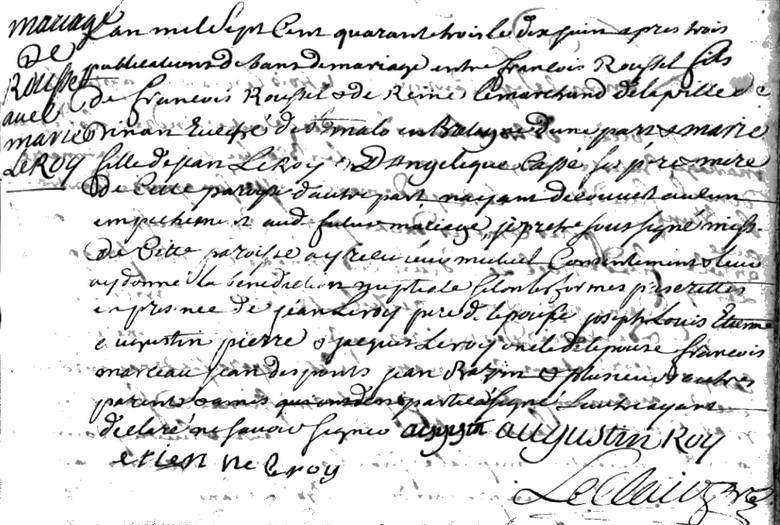 mariage
De
Roussel
avec
marie
Le Roy
Lan mil sept cent quarante trois le dix juin apres trois
publications de bans de mariage entre francois Roussel fils
de francois Roussel & de Reine lemarchand de la ville
dinan Evesché de st malo en Bretagne dune part & marie
fille de jean LeRoy & Dangelique Cassé ses pere & mere
de Cette paroisse d'autre part nayant découvert aucun
empechement aud futur mariage, je pretre soussigné miss.
de Cette paroisse ay receu leur mutuel Consentement & leur
ay donné la bénédiction nuptiale selon les formes prescrittes
en presence de jean Leroy pere de lepouse joseph Louis Etienne
augustin pierre & jacques Leroy oncle de lepouse francois
marceau jean desponts jean Bazin & plusieurs autres
parents & amis qui ont en partie signé Lautre ayant
déclaré ne savoir signer augustin Roy
etien ne Leroy
LeClair ptre